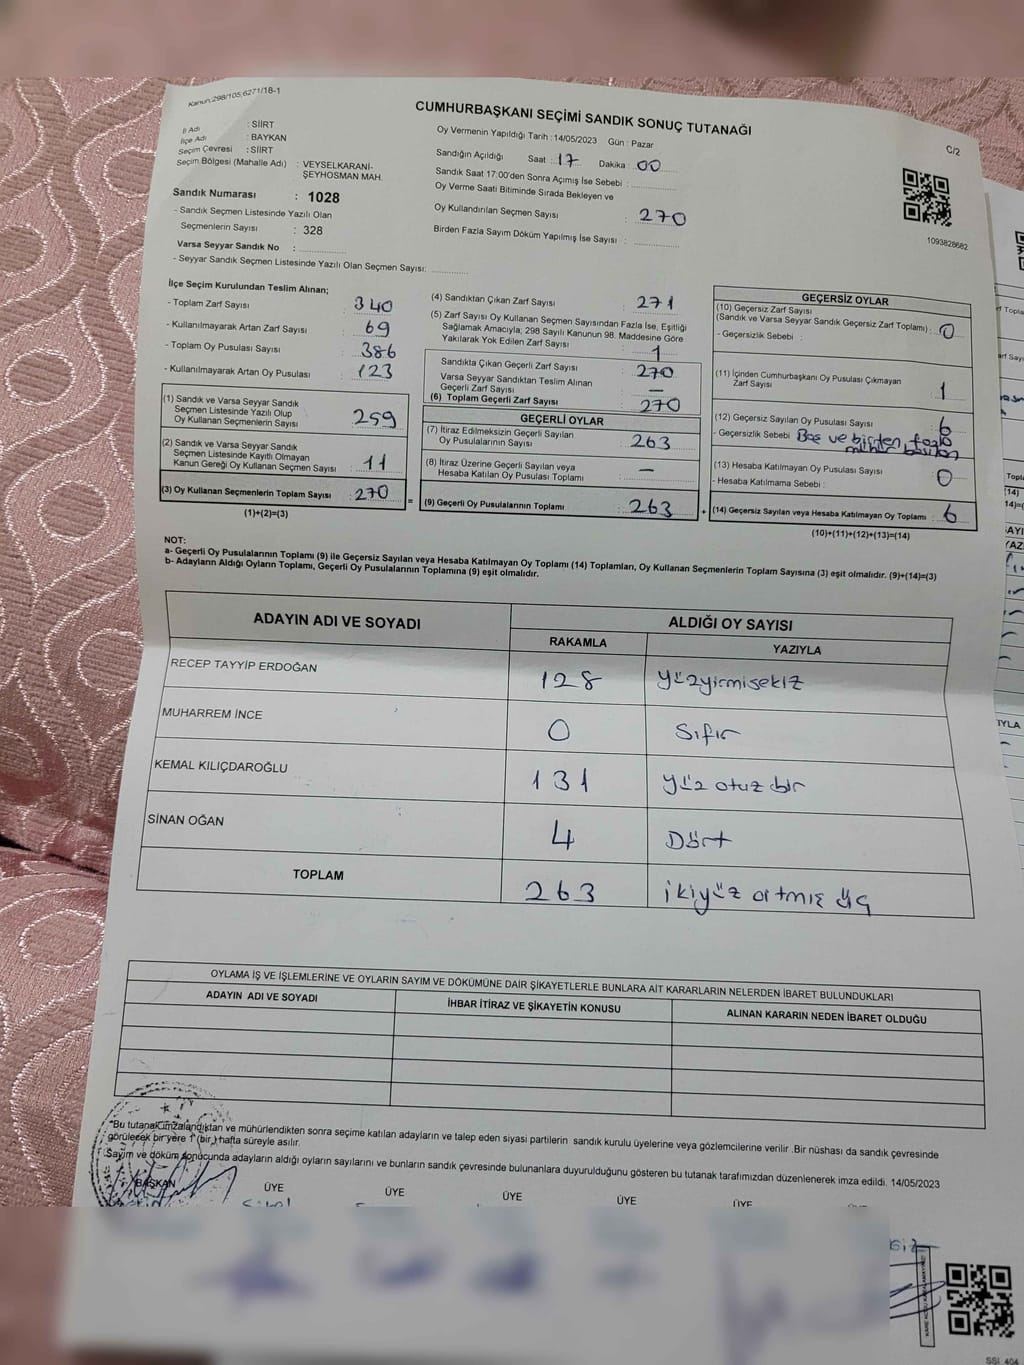 Kanun:298/105,6271/18-1
CUMHURBAŞKANI SEÇİMİ SANDIK SONUÇ TUTANAĞI
C/2
İl Adı : SİİRT
İlçe Adı : BAYKAN
Seçim Çevresi : SİİRT
Seçim Bölgesi (Mahalle Adı) : VEYSELKARANİ-
ŞEYHOSMAN MAH.
Sandık Numarası : 1028
- Sandık Seçmen Listesinde Yazılı Olan
Seçmenlerin Sayısı : 328
Varsa Seyyar Sandık No :
- Seyyar Sandık Seçmen Listesinde Yazılı Olan Seçmen Sayısı:
Oy Vermenin Yapıldığı Tarih : 14/05/2023 Gün : Pazar
Sandığın Açıldığı Saat : 17 Dakika : 00
Sandık Saat 17:00'den Sonra Açımış İse Sebebi :
Oy Verme Saati Bitiminde Sırada Bekleyen ve
Oy Kullandırılan Seçmen Sayısı : 270
Birden Fazla Sayım Döküm Yapılmış İse Sayısı :
1093828682
İlçe Seçim Kurulundan Teslim Alınan;
- Toplam Zarf Sayısı : 340
- Kullanılmayarak Artan Zarf Sayısı : 69
- Toplam Oy Pusulası Sayısı : 386
- Kullanılmayarak Artan Oy Pusulası : 123
(1) Sandık ve Varsa Seyyar Sandık
Seçmen Listesinde Yazılı Olup
Oy Kullanan Seçmenlerin Sayısı : 259
(2) Sandık ve Varsa Seyyar Sandık
Seçmen Listesinde Kayıtlı Olmayan
Kanun Gereği Oy Kullanan Seçmen Sayısı : 11
(3) Oy Kullanan Seçmenlerin Toplam Sayısı : 270
(1)+(2)=(3)
=
(4) Sandıktan Çıkan Zarf Sayısı : 271
(5) Zarf Sayısı Oy Kullanan Seçmen Sayısından Fazla İse, Eşitliği
Sağlamak Amacıyla; 298 Sayılı Kanunun 98. Maddesine Göre
Yakılarak Yok Edilen Zarf Sayısı : 1
Sandıkta Çıkan Geçerli Zarf Sayısı : 270
Varsa Seyyar Sandıktan Teslim Alınan
Geçerli Zarf Sayısı : —
(6) Toplam Geçerli Zarf Sayısı : 270
GEÇERLİ OYLAR
(7) İtiraz Edilmeksizin Geçerli Sayılan
Oy Pusulalarının Sayısı : 263
(8) İtiraz Üzerine Geçerli Sayılan veya
Hesaba Katılan Oy Pusulası Toplamı : —
(9) Geçerli Oy Pusulalarının Toplamı : 263
+
GEÇERSİZ OYLAR
(10) Geçersiz Zarf Sayısı
(Sandık ve Varsa Seyyar Sandık Geçersiz Zarf Toplamı) : 0
- Geçersizlik Sebebi :
(11) İçinden Cumhurbaşkanı Oy Pusulası Çıkmayan
Zarf Sayısı : 1
(12) Geçersiz Sayılan Oy Pusulası Sayısı : 6
- Geçersizlik Sebebi : Boş ve birden fazla
mühür basılan
(13) Hesaba Katılmayan Oy Pusulası Sayısı : 0
- Hesaba Katılmama Sebebi :
(14) Geçersiz Sayılan veya Hesaba Katılmayan Oy Toplamı : 6
(10)+(11)+(12)+(13)=(14)
NOT:
a- Geçerli Oy Pusulalarının Toplamı (9) ile Geçersiz Sayılan veya Hesaba Katılmayan Oy Toplamı (14) Toplamları, Oy Kullanan Seçmenlerin Toplam Sayısına (3) eşit olmalıdır. (9)+(14)=(3)
b- Adayların Aldığı Oyların Toplamı, Geçerli Oy Pusulalarının Toplamına (9) eşit olmalıdır.
ADAYIN ADI VE SOYADI ALDIĞI OY SAYISI
RAKAMLA YAZIYLA
RECEP TAYYİP ERDOĞAN 128 yüzyirmisekiz
MUHARREM İNCE 0 Sıfır
KEMAL KILIÇDAROĞLU 131 yüz otuz bir
SİNAN OĞAN 4 Dört
TOPLAM 263 ikiyüz atmış üç
OYLAMA İŞ VE İŞLEMLERİNE VE OYLARIN SAYIM VE DÖKÜMÜNE DAİR ŞİKAYETLERLE BUNLARA AİT KARARLARIN NELERDEN İBARET BULUNDUKLARI
ADAYIN ADI VE SOYADI İHBAR İTİRAZ VE ŞİKAYETİN KONUSU ALINAN KARARIN NEDEN İBARET OLDUĞU
"Bu tutanak imzalandıktan ve mühürlendikten sonra seçime katılan adayların ve talep eden siyasi partilerin sandık kurulu üyelerine veya gözlemcilerine verilir .Bir nüshası da sandık çevresinde
görülecek bir yere 1 (bir) hafta süreyle asılır.
Sayım ve döküm sonucunda adayların aldığı oyların sayılarını ve bunların sandık çevresinde bulunanlara duyurulduğunu gösteren bu tutanak tarafımızdan düzenlenerek imza edildi. 14/05/2023
BAŞKAN ÜYE ÜYE ÜYE ÜYE ÜYE